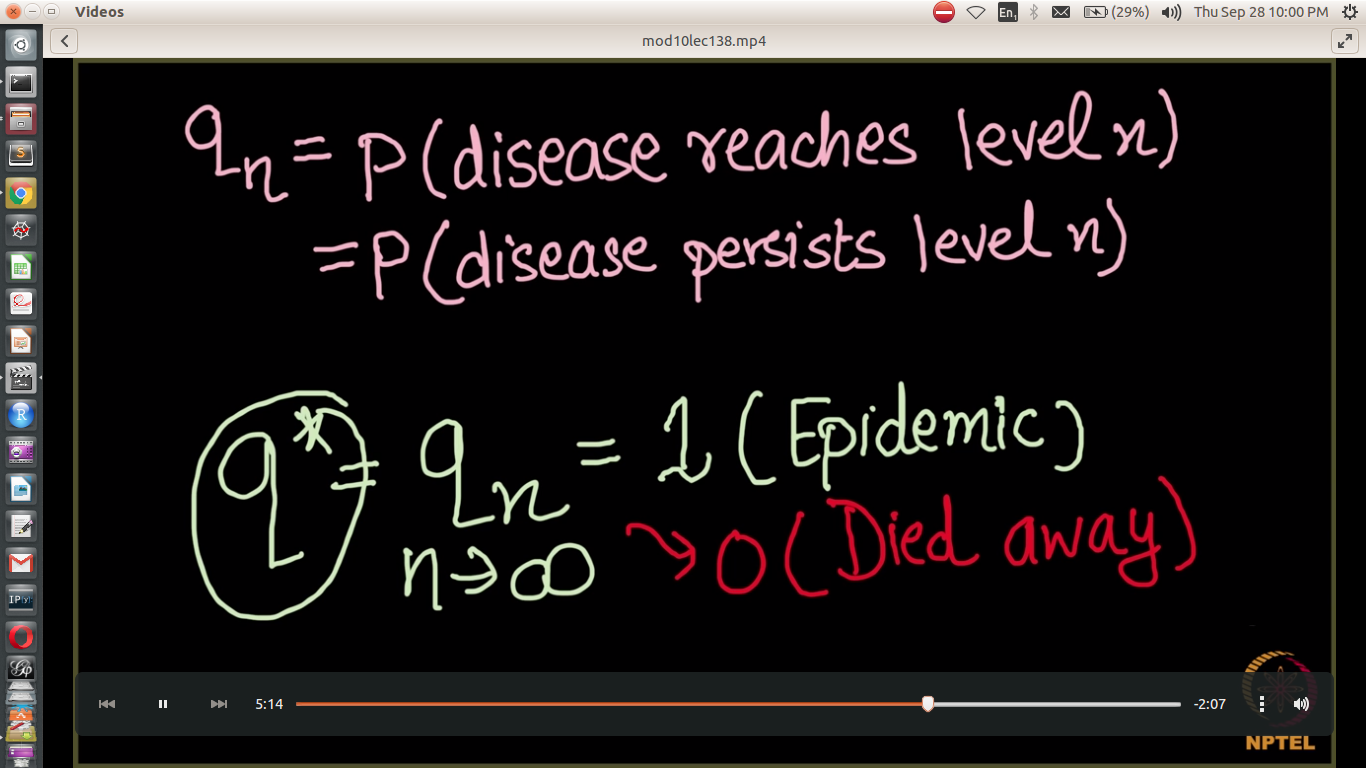 Videos
En1
(29%)
Thu Sep 28 10:00 PM
mod10lec138.mp4
qn = P(disease reaches level n)
= P(disease persists level n)
q* = qn = 1 (Epidemic)
n→∞ → 0 (Died away)
5:14
-2:07
NPTEL